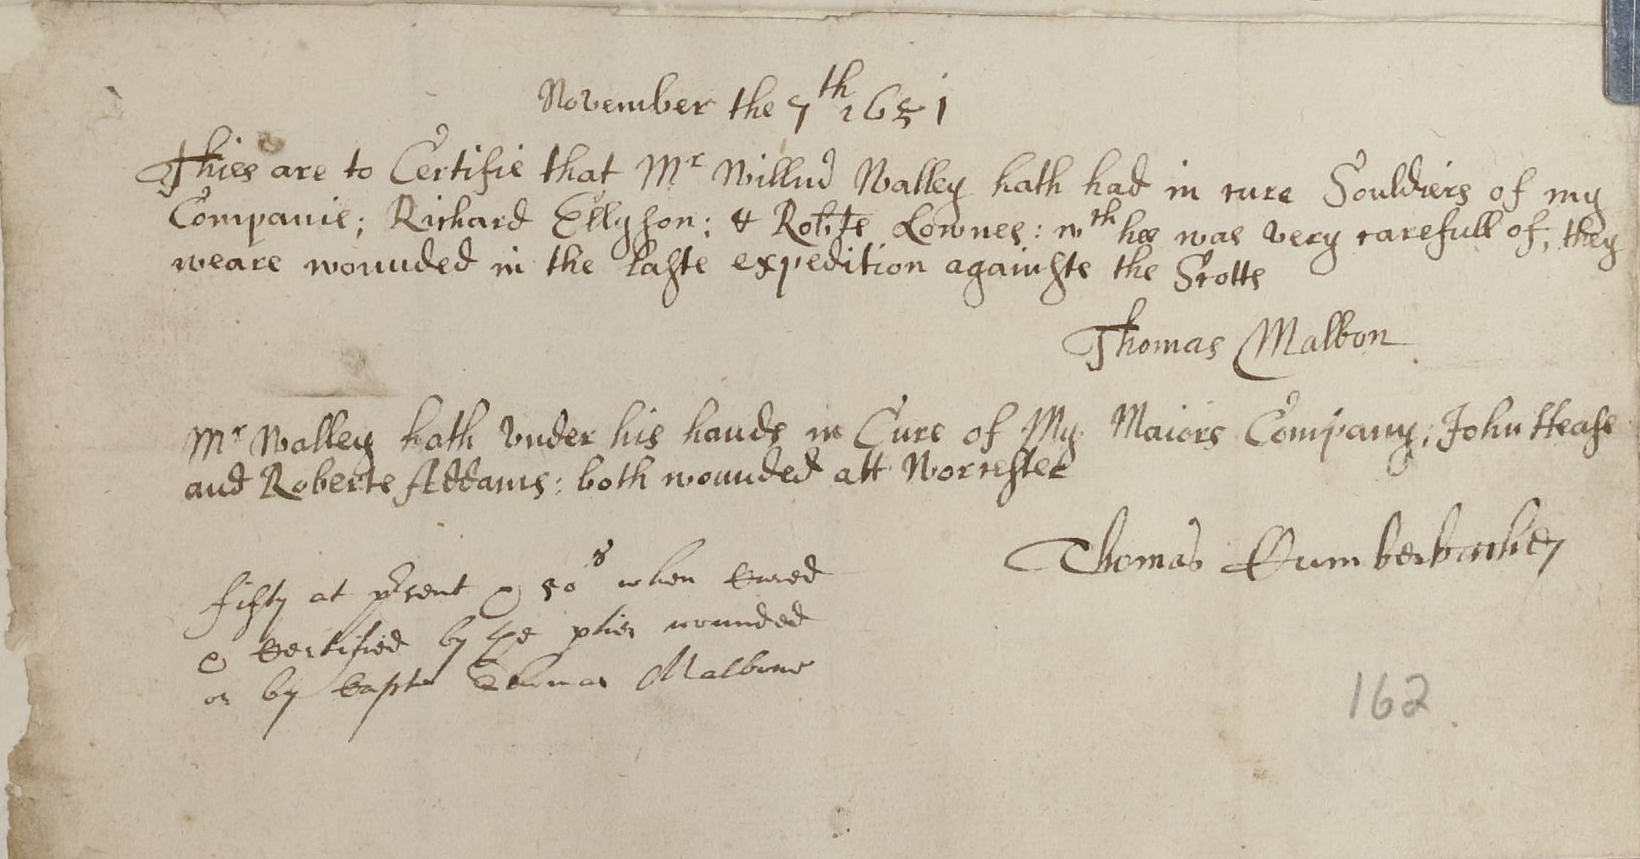 November the 7th 1651
Thies are to Certifie that Mr Willm Walley hath had in cure Souldiers of my
Companie; Richard Ellyson; & Robte Lownes: wth hee was very carefull of, they
weare wounded in the laste expedition againste the Scotts
Thomas Malbon
Mr Walley hath vnder his hands in Cure of My Maiors Company; John Hease
and Roberte Addams: both wounded att Worcester
Thomas Cumberbachey
fifty at present & 50s when Cured
& Certified by ye pties wounded
or by Capt Thomas Malbone
162